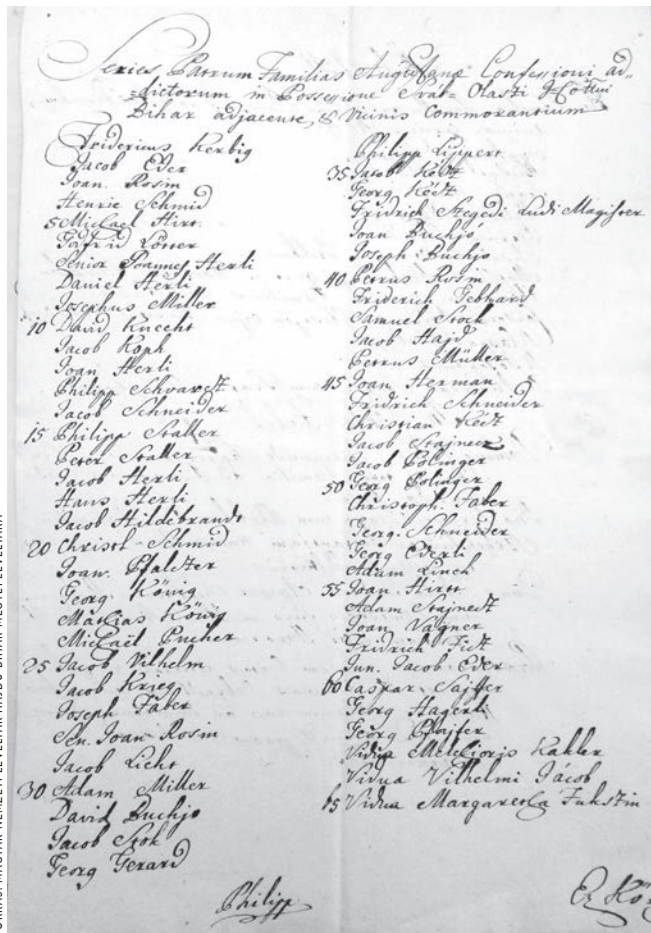 Series Patrum Familias Augustanæ Confessioni ad=
=dictorum in Possessione Vrát-Olaszi
Bihar adjacente, & Vicinis Commorantium
Fridericus Kerbig
Jacob Eder
Joan. Rosin
Henric Schmid
5 Michael Hirt
Gotfrid Lötter
Senior Joannes Herli
Daniel Herli
Josephus Miller
10 David Knecht
Jacob Koph
Joan Herli
Philipp Schvardt
Jacob Schneider
15 Philipp Staller
Peter Staller
Jacob Herli
Hans Herli
Jacob Hildebrandt
20 Christ. Schmid
Joan. Pfaldzer
Georg König
Mathias König
Michaël Pucher
25 Jacob Vilhelm
Jacob Krieg
Joseph Faber
Sen. Joan Rosin
Jacob Licht
30 Adam Miller
David Buchjo
Jacob Stok
Georg Gerard
Philipp
Philipp Lippert
35 Jacob Ködt
Georg Ködt
Fridrich Szegedi Ludi Magister
Joan Buchjo
Joseph Buchjo
40 Petrus Rosin
Friderich Gebhard
Samuel Stock
Jacob Hajd
Petrus Müller
45 Joan Herman
Fridrich Schneider
Christian Kedt
Jacob Stajnecz
Jacob Polinger
50 Georg Polinger
Christoph. Faber
Georg. Schneider
Georg Ederli
Adam Linch
55 Joan Hirtt
Adam Stajnedt
Joan Vagner
Fridrich Fidt
Jun. Jacob Eder
60 Caspar Sajffer
Georg Hagerli
Georg Pfajfer
Vidua Melchioris Kahler
Vidua Vilhelmi Jácob
65 Vidua Margaretha Fukstin